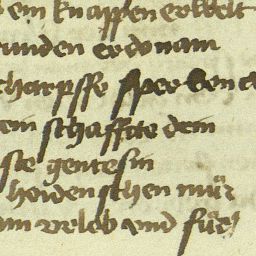 ein knappen erwelt
unden er do nam
scharpffe sper ben
ein schafftte dem
ste gentes in
heidenschen mür
am vrleb vnd für